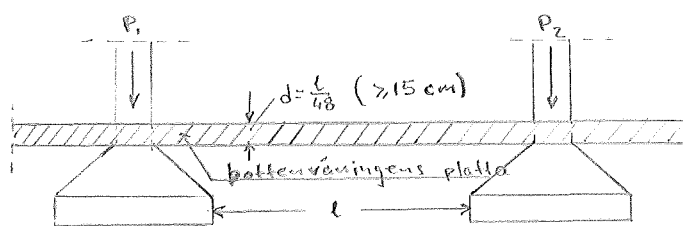 P₁
P₂
d=l/48 (≥15 cm)
bottenvåningens platta
l